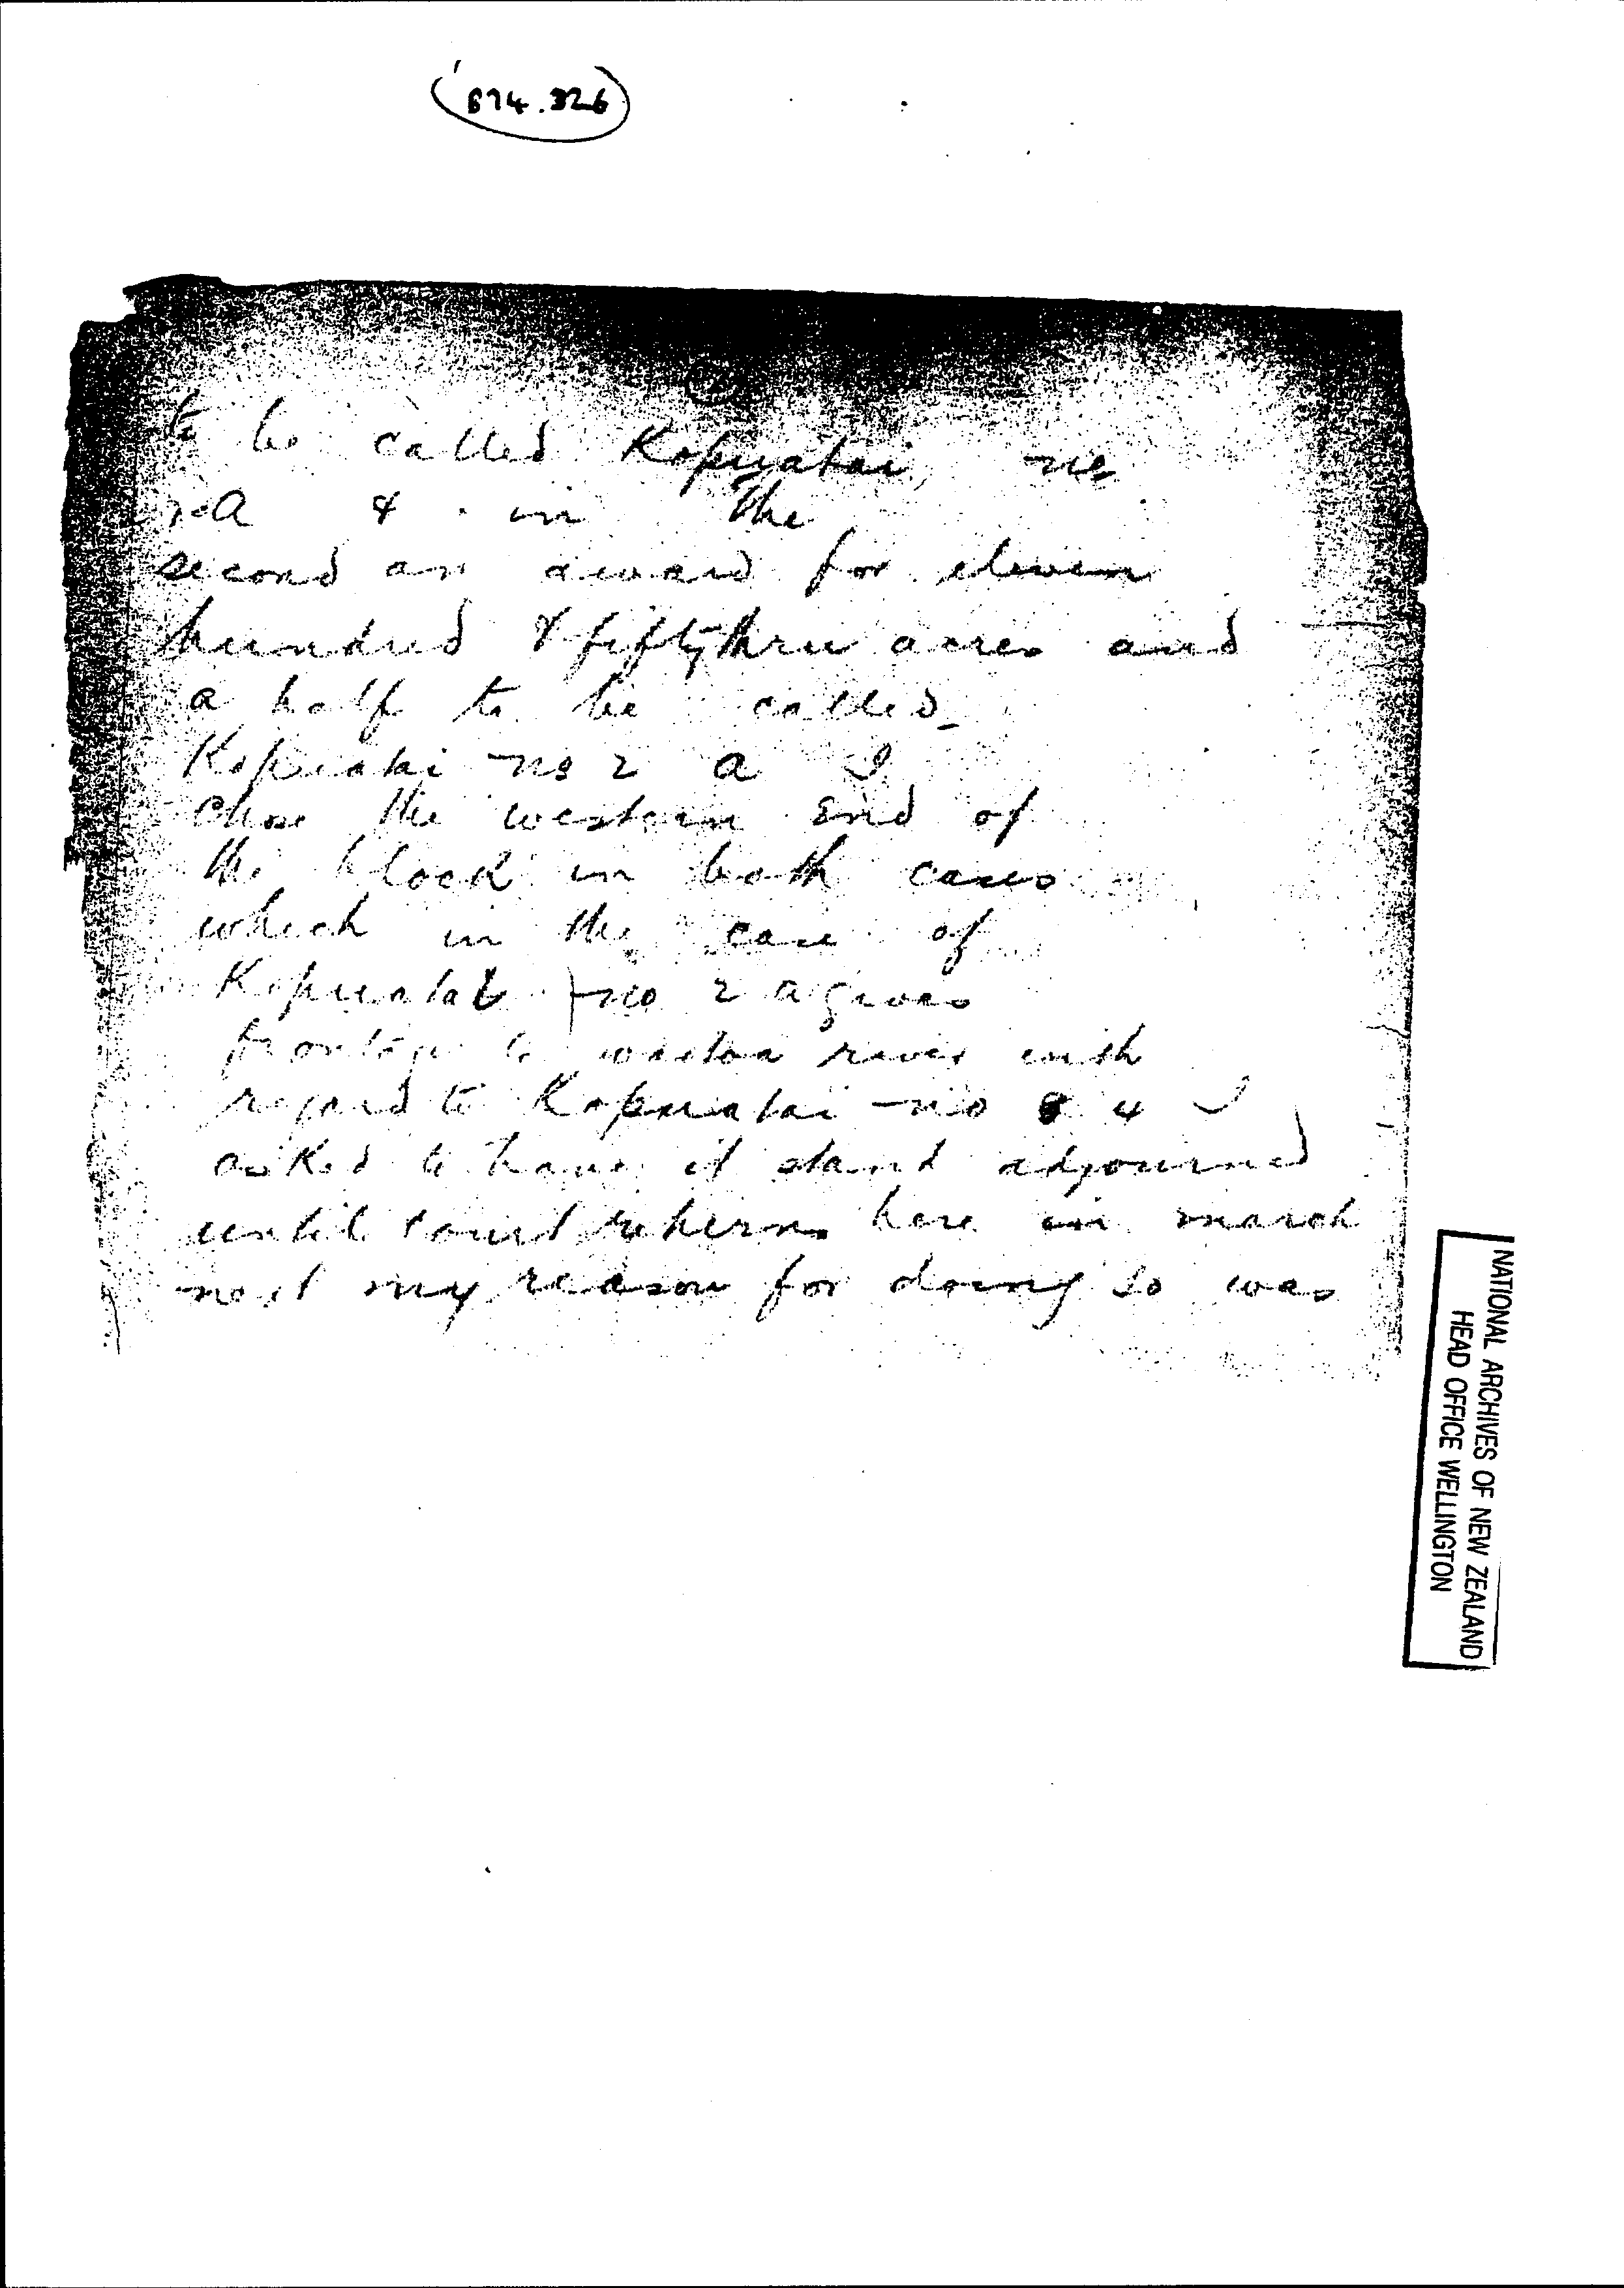 674.326
to be called Kopuatai no
1 a & in the
second an award for eleven
hundred & fifty three acres and
a half to be called
Kopuatai no 2 a I
Chose the western end of
the block in both cases
which in the case of
Kopuatai no 2 a gives
frontage to waitoa river with
regard to Kopuatai no 4 I
asked to have it stand adjourned
until court returns here in march
next my reason for doing so was
NATIONAL ARCHIVES OF NEW ZEALAND
HEAD OFFICE WELLINGTON